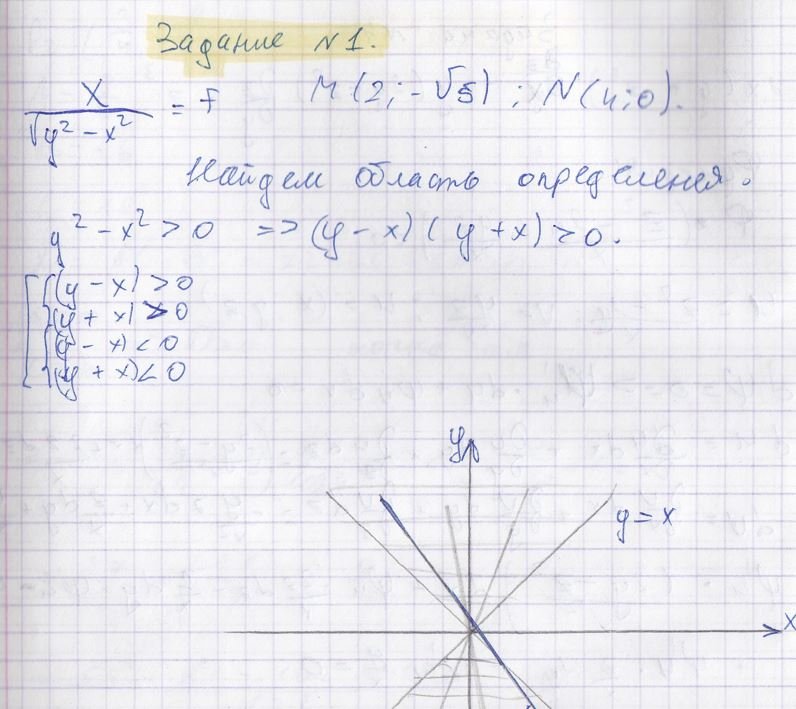 Задание №1.
x / √(y² - x²) = f M(2; -√5); N(4; 0).
Найдем область определения.
y² - x² > 0 => (y - x)(y + x) > 0.
[{(y - x) > 0
{(y + x) > 0
{(y - x) < 0
{(y + x) < 0
y
y = x
x